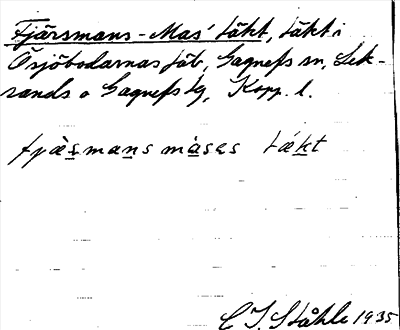 Fjärsmans-Mas' täkt, täkt i
Ösjöbodarnas fäb, Gagnefs sn, Lek-
sands o Gagnefs tg, Kopp. l.
fjæ̀smans màses tǽkt
C I. Ståhle 1935